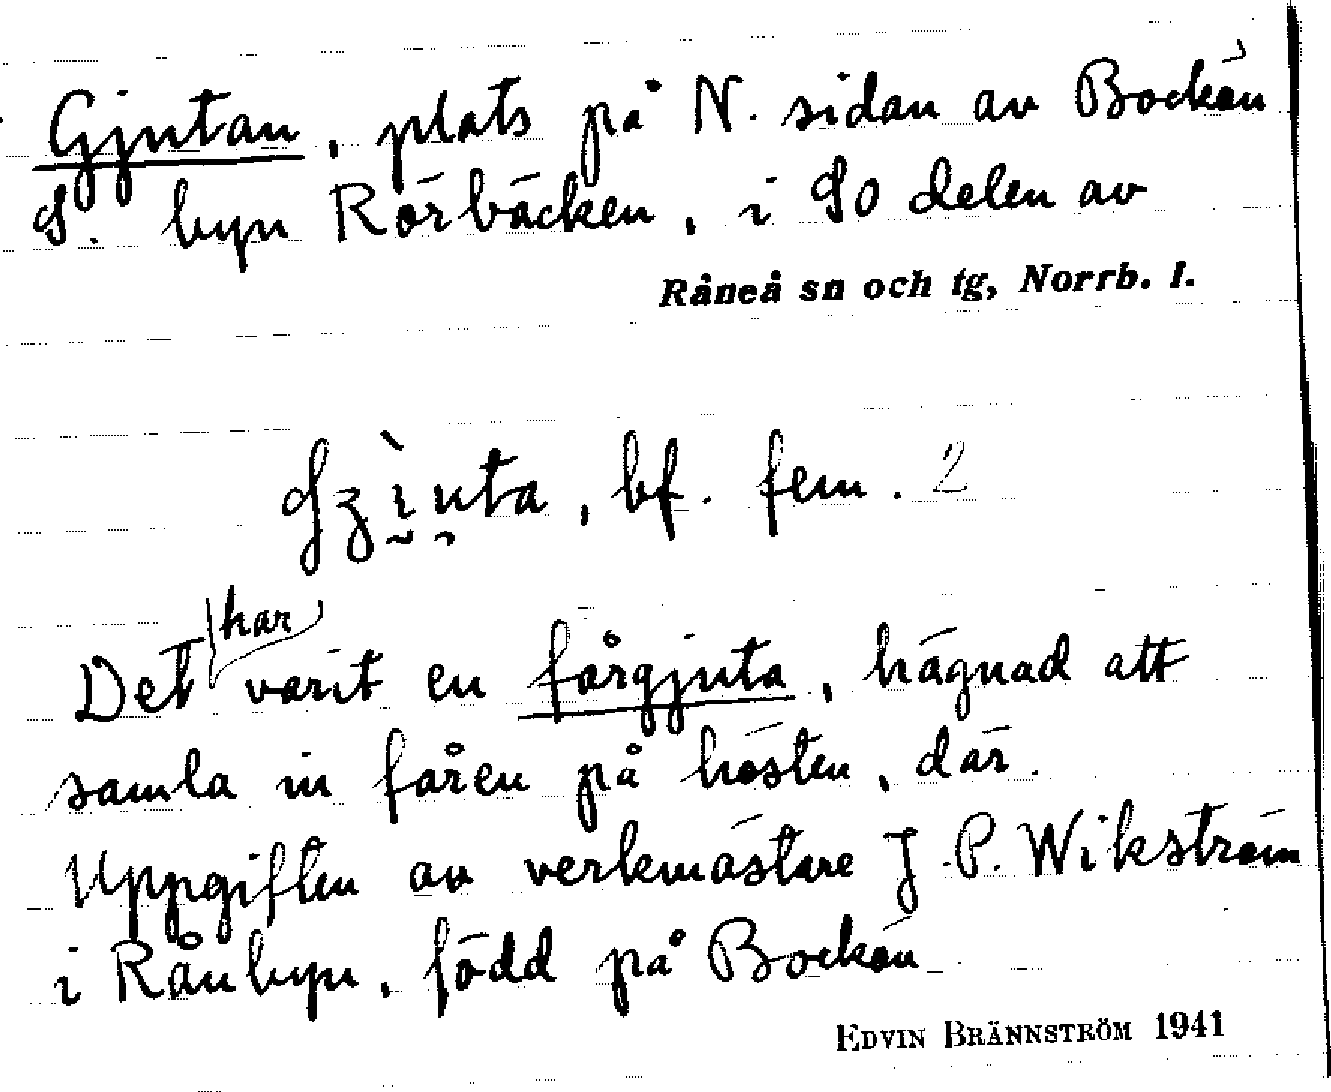 Gjutan, plats på N. sidan av Bockön
S. byn Rörbäcken, i SO delen av
Råneå sn och tg, Norrb. l.
bf. fem. 2
Det har varit en fårgjuta, hägnad att
samla in fåren på hösten, där.
Uppgiften av verkmästare J. P. Wikström
i Rånbyn, född på Bockön
EDVIN BRÄNNSTRÖM 1941